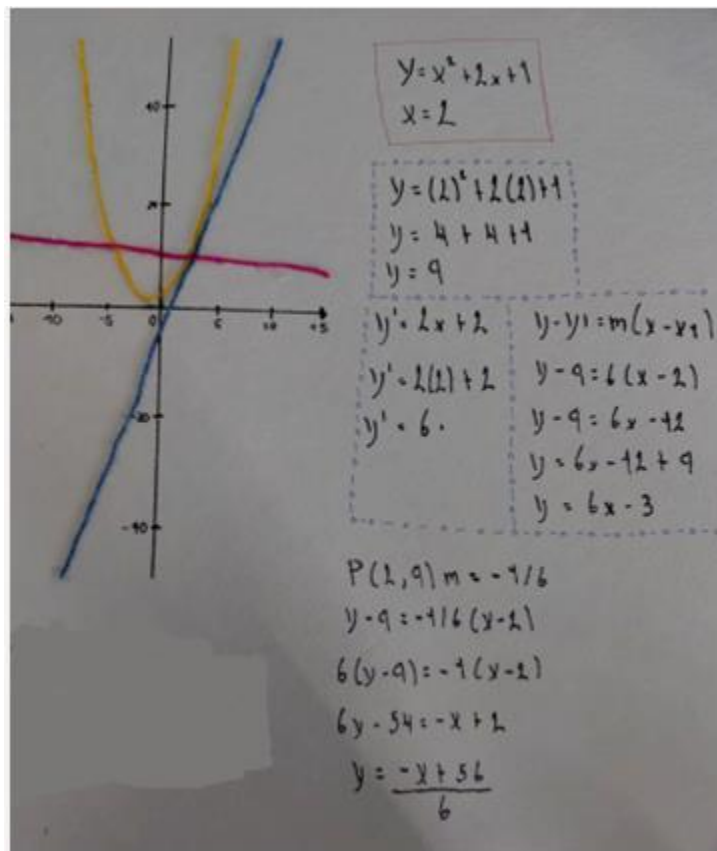 40
20
-10
-5
0
5
10
15
-20
-40
y = x² + 2x + 1
x = 2
y = (2)² + 2(2) + 1
y = 4 + 4 + 1
y = 9
y' = 2x + 2
y' = 2(2) + 2
y' = 6.
y - y1 = m(x - x1)
y - 9 = 6(x - 2)
y - 9 = 6x - 12
y = 6x - 12 + 9
y = 6x - 3
P(2,9) m = -1/6
y - 9 = -1/6 (x - 2)
6(y - 9) = -1(x - 2)
6y - 54 = -x + 2
y = -x + 56
6